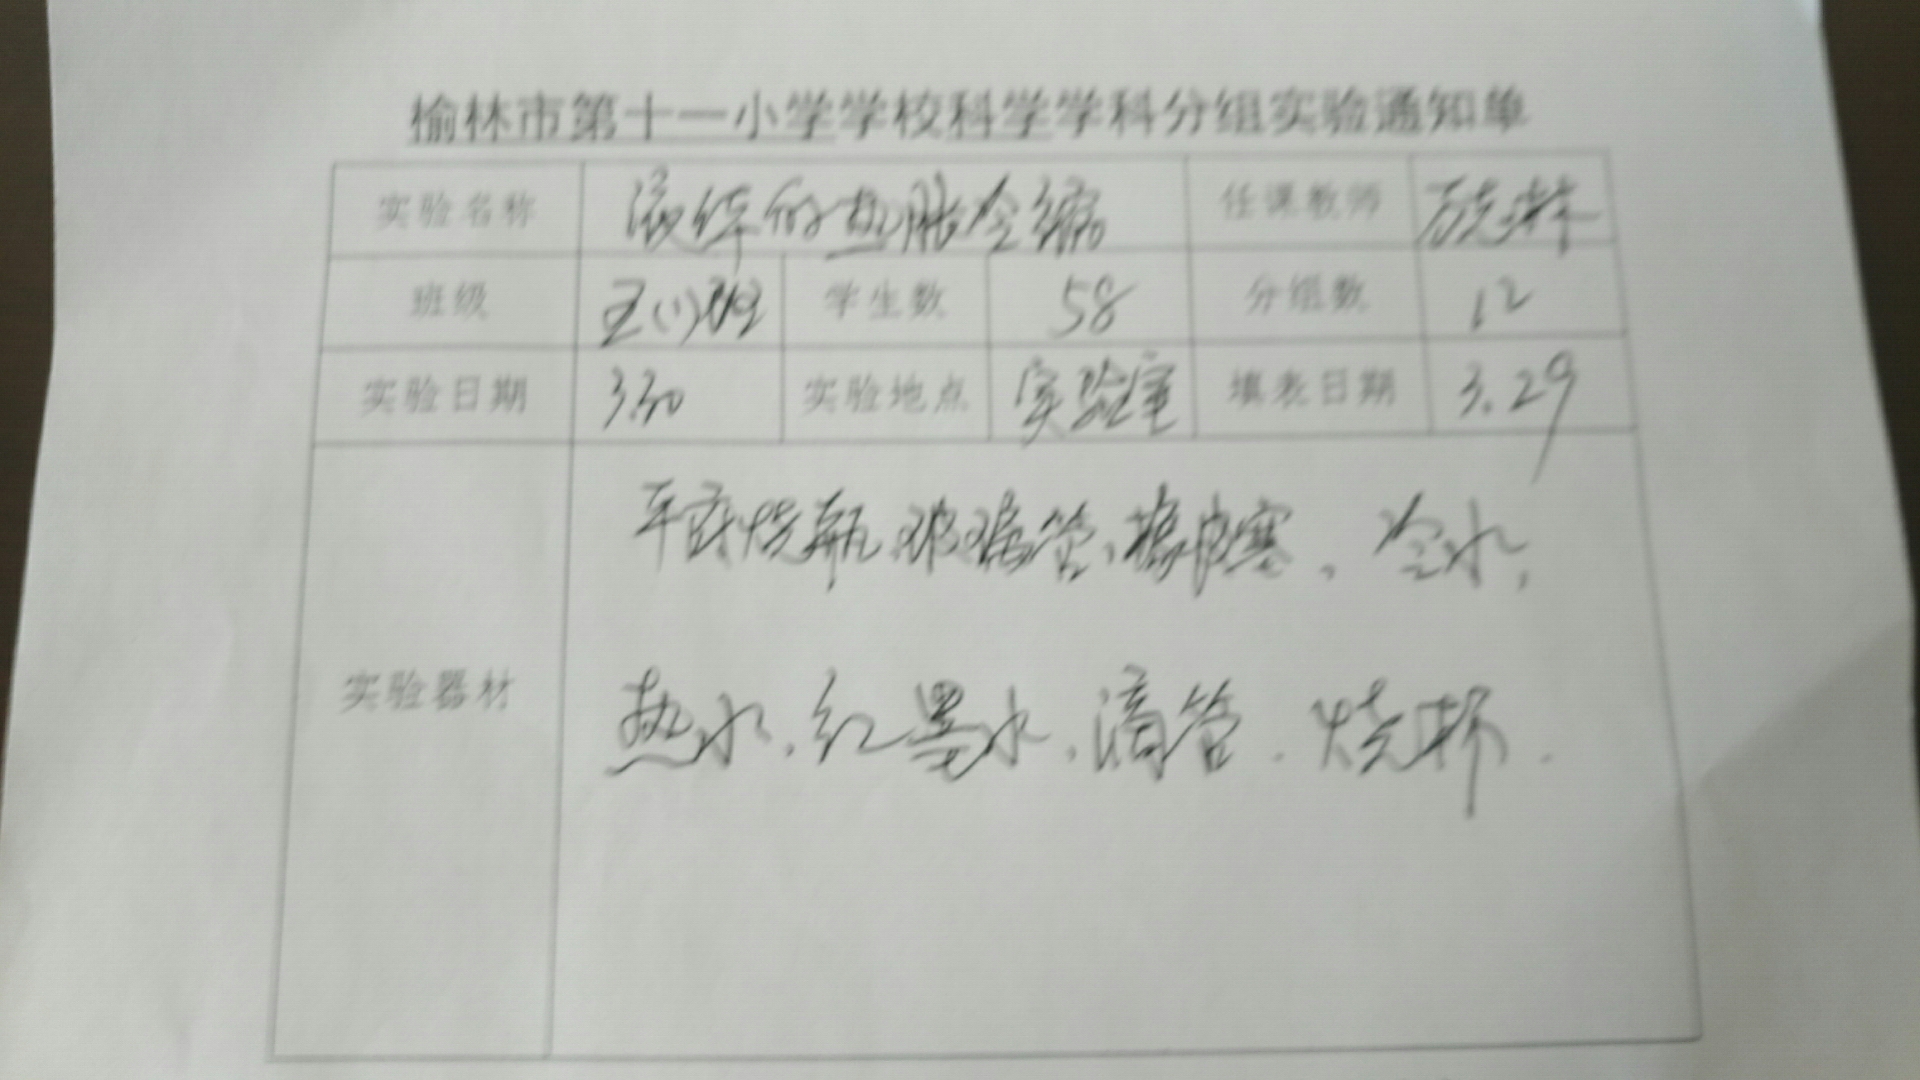 榆林市第十一小学学校科学学科分组实验通知单
实验名称 液体的热胀冷缩 任课教师
班级 五(1)班 学生数 58 分组数 12
实验日期 3.30 实验地点 实验室 填表日期 3.29
平底烧瓶、玻璃管、橡皮塞、冷水、
实验器材 热水、红墨水、滴管、烧杯.